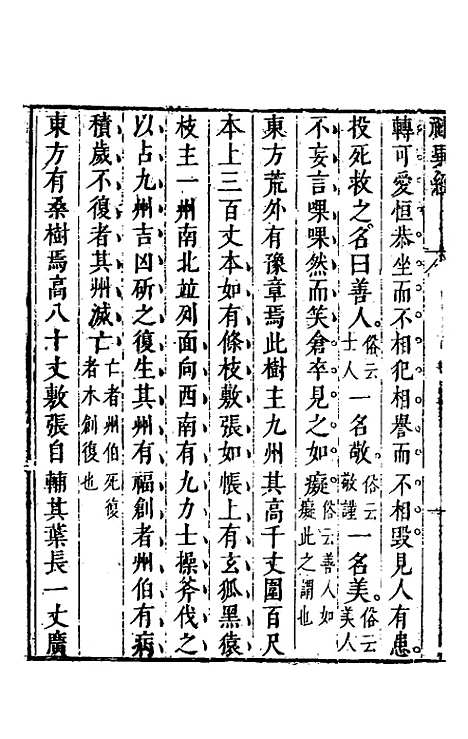 神異經
轉可愛恒恭坐而不相犯相譽而不相毀見人有患
投死救之名曰善人俗云士人一名敬俗云敬謹一名美俗云美人
不妄言㗲㗲然而笑倉卒見之如癡俗云善人如癡此之謂也
東方荒外有豫章焉此樹主九州其高千丈圍百尺
本上三百丈本如有條枝敷張如帳上有玄狐黑猿
枝主一州南北並列面向西南有九力士操斧伐之
以占九州吉凶斫之復生其州有福創者州伯有病
積歲不復者其州滅亡亡者州伯死復者木創復也
東方有桑樹焉高八十丈敷張自輔其葉長一丈廣